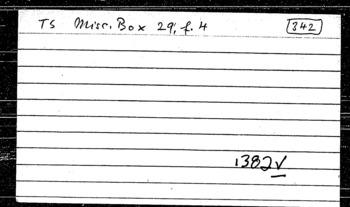 TS Misc. Box 29, f. 4 342
1382✓